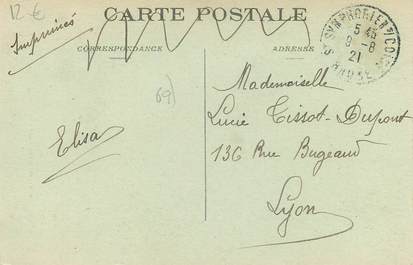 12 €
CARTE POSTALE
Imprimés
CORRESPONDANCE
ADRESSE
5 45
8 - 8
21
69)
Mademoiselle
Lucie Tissot-Dupont
136 Rue Bugeaud
Lyon
Elisa